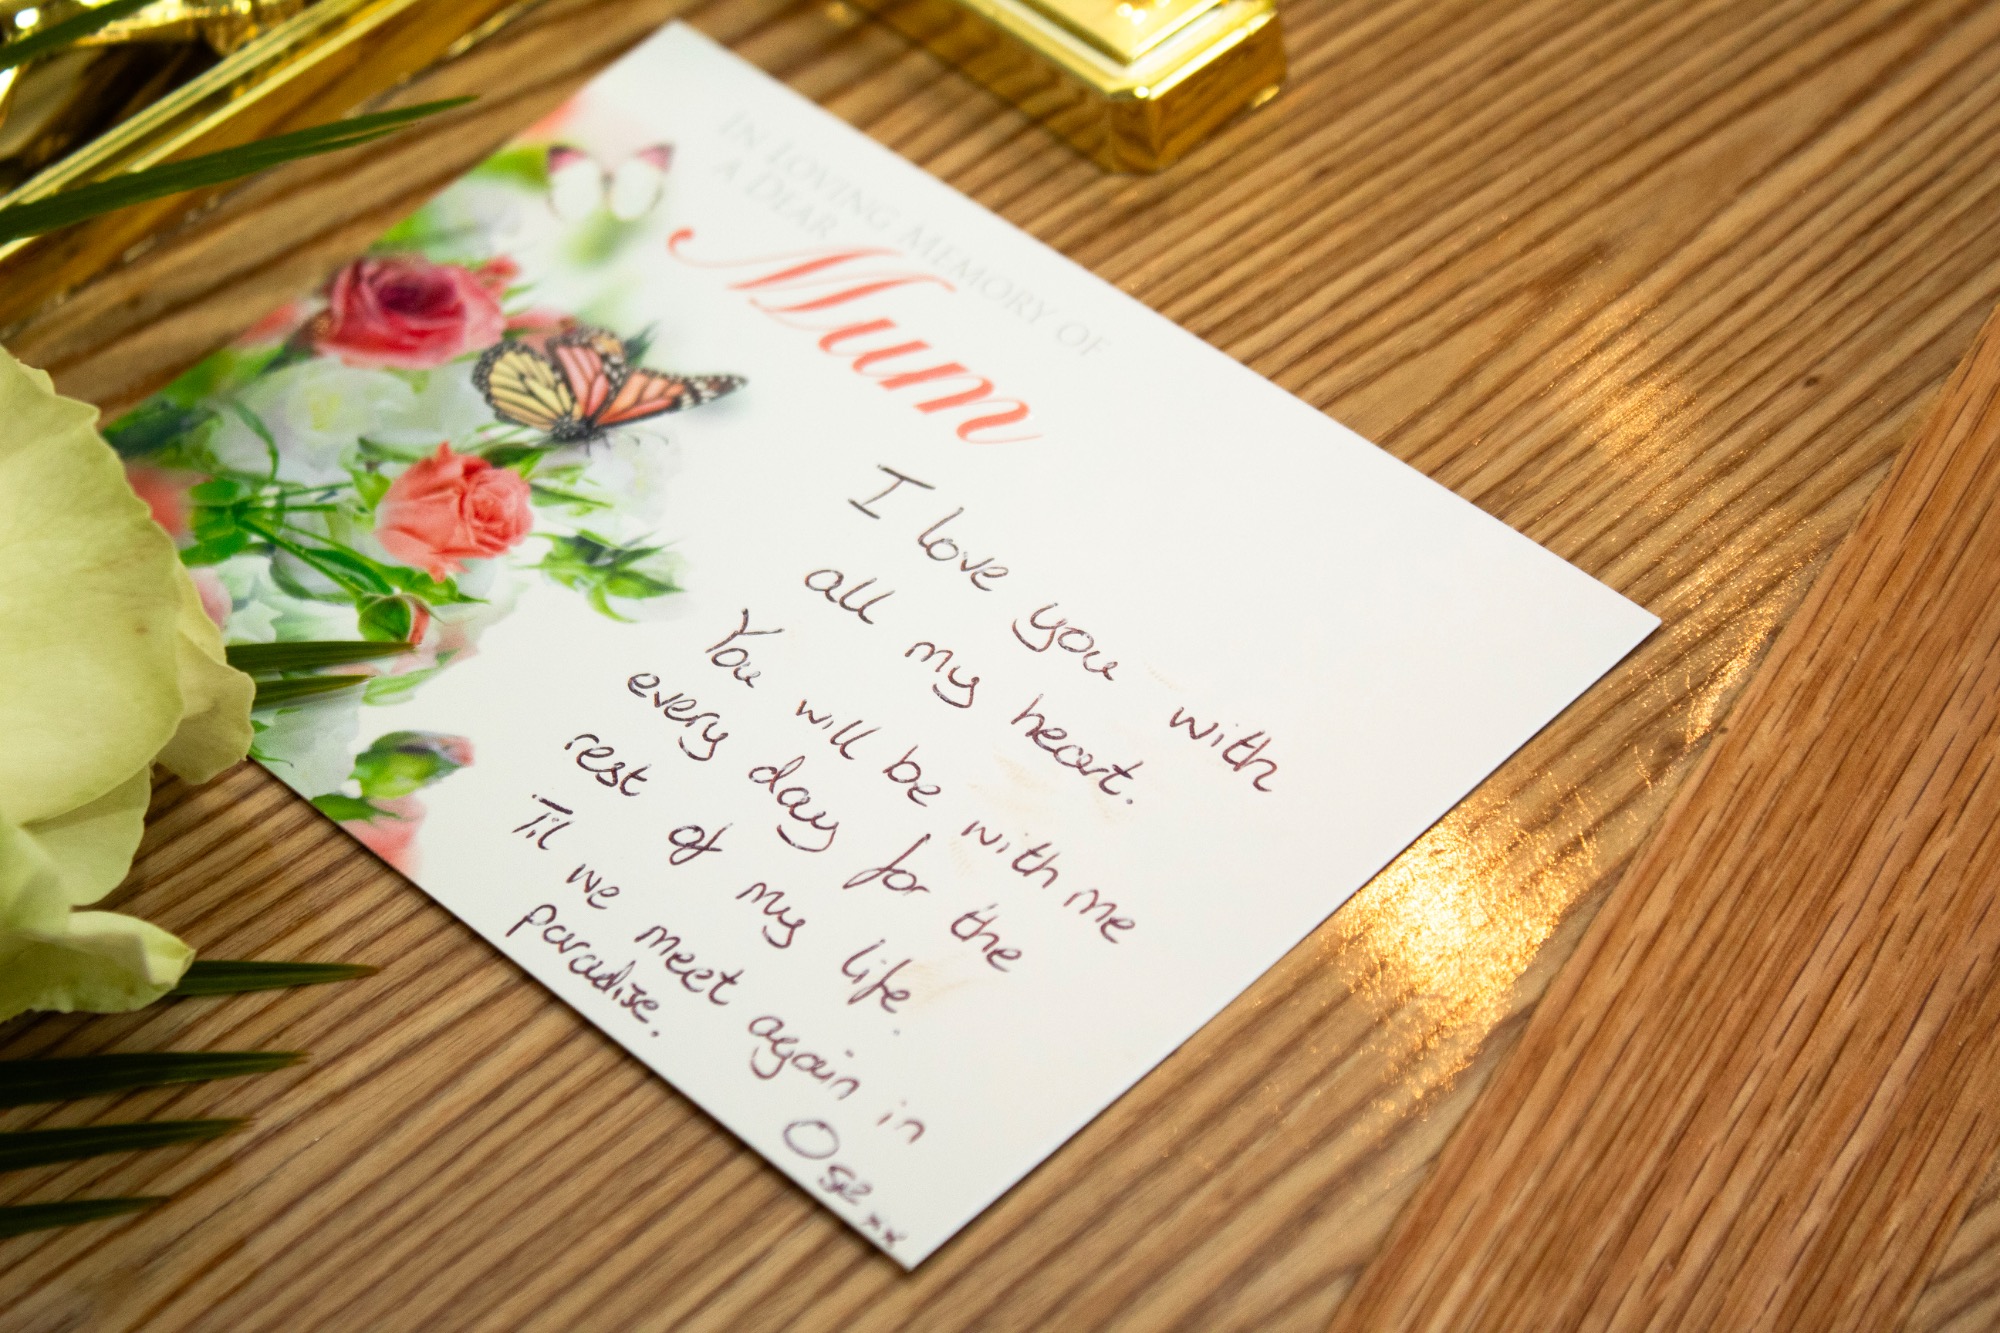 IN LOVING MEMORY OF
A DEAR
Mum
I love you with
all my heart.
You will be with me
every day for the
rest of my life.
Til we meet again in
paradise.
Ose xx